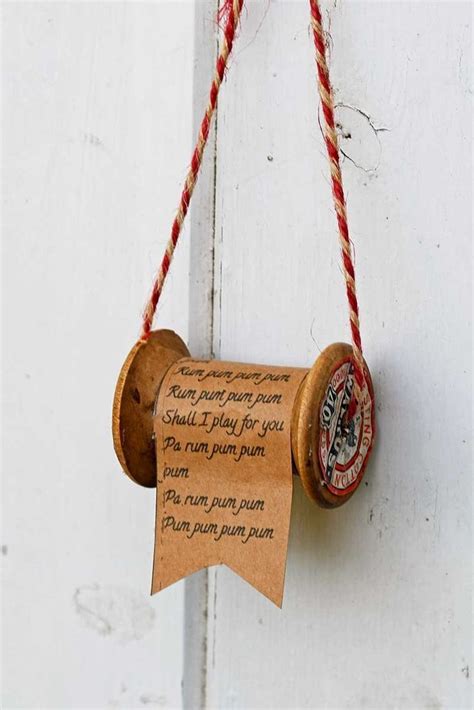 Rum pum pum pum
Rum pum pum pum
Shall I play for you
Pa rum pum pum
pum
Pa rum pum pum
Pum pum pum pum